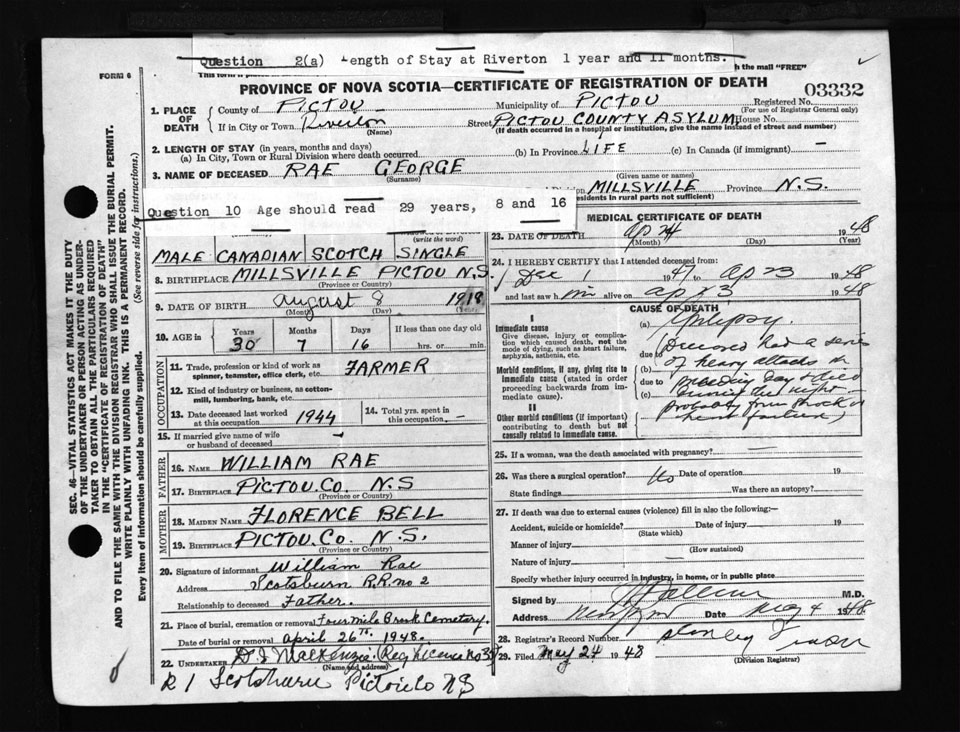 Question 2(a) Length of Stay at Riverton 1 year and 11 months.
h the mail "FREE"
FORM 6
PROVINCE OF NOVA SCOTIA—CERTIFICATE OF REGISTRATION OF DEATH
03332
1. PLACE OF DEATH
County of PICTOU
Municipality of PICTOU
Registered No.
(For use of Registrar General only)
If in City or Town Riverton
(Name)
Street PICTOU COUNTY ASYLUM House No.
(If death occurred in a hospital or institution, give the name instead of street and number)
2. LENGTH OF STAY (in years, months and days)
(a) In City, Town or Rural Division where death occurred
(b) In Province LIFE (c) In Canada (if immigrant) —
3. NAME OF DECEASED RAE GEORGE
(Surname) (Given name or names)
MILLSVILLE Province N.S.
residents in rural parts not sufficient)
Question 10 Age should read 29 years, 8 and 16
(write the word)
MALE CANADIAN SCOTCH SINGLE
8. BIRTHPLACE MILLSVILLE PICTOU N.S.
(Province or Country)
9. DATE OF BIRTH August 8 1918
(Month) (Day) (Year)
10. AGE in Years Months Days If less than one day old
30 7 16 hrs. or min.
OCCUPATION
11. Trade, profession or kind of work as spinner, teamster, office clerk, etc. FARMER
12. Kind of industry or business, as cotton-mill, lumbering, bank, etc.
13. Date deceased last worked at this occupation 1944
14. Total yrs. spent in this occupation —
15. If married give name of wife or husband of deceased
FATHER
16. NAME WILLIAM RAE
17. BIRTHPLACE PICTOU. CO. N.S
(Province or Country)
MOTHER
18. MAIDEN NAME FLORENCE BELL
19. BIRTHPLACE PICTOU. CO. N.S.
(Province or Country)
20. Signature of informant William Rae
Address Scotsburn R.R. no 2
Relationship to deceased Father.
21. Place of burial, cremation or removal Four Mile Brook Cemetary.
Date of burial or removal april 26TH 1948.
22. UNDERTAKER D. I MacKenzie. Reg licence No
(Name and address)
R 1 Scotsburn Pictou Co NS
MEDICAL CERTIFICATE OF DEATH
23. DATE OF DEATH 1948
(Month) (Day) (Year)
24. I HEREBY CERTIFY that I attended deceased from:
Dec 1 1947 to Ap 23 1948
and last saw him alive on 1948
CAUSE OF DEATH
I
Immediate cause
Give disease, injury or complication which caused death, not the mode of dying, such as heart failure, asphyxia, asthenia, etc.
Morbid conditions, if any, giving rise to immediate cause (stated in order proceeding backwards from immediate cause).
II
Other morbid conditions (if important) contributing to death but not causally related to immediate cause.
(a) Epilepsy.
Deceased had a series
due to
(b) of heavy attacks
due to preceding day & died
during the night
probably from shock
25. If a woman, was the death associated with pregnancy?
26. Was there a surgical operation? No Date of operation 19
State findings Was there an autopsy?
27. If death was due to external causes (violence) fill in also the following:
Accident, suicide or homicide? Date of injury 19
(State which)
Manner of injury
(How sustained)
Nature of injury —
Specify whether injury occurred in industry, in home, or in public place
Signed by M.D.
Address Date May 4 1948
28. Registrar's Record Number
29. Filed May 24 1948
(Division Registrar)
SEC. 46—VITAL STATISTICS ACT MAKES IT THE DUTY
OF THE UNDERTAKER OR PERSON ACTING AS UNDER-
TAKER TO OBTAIN ALL THE PARTICULARS REQUIRED
IN THE "CERTIFICATE OF REGISTRATION OF DEATH"
AND TO FILE THE SAME WITH THE DIVISION REGISTRAR WHO SHALL ISSUE THE BURIAL PERMIT.
WRITE PLAINLY WITH UNFADING INK. THIS IS A PERMANENT RECORD.
Every item of information should be carefully supplied. (See reverse side for instructions.)